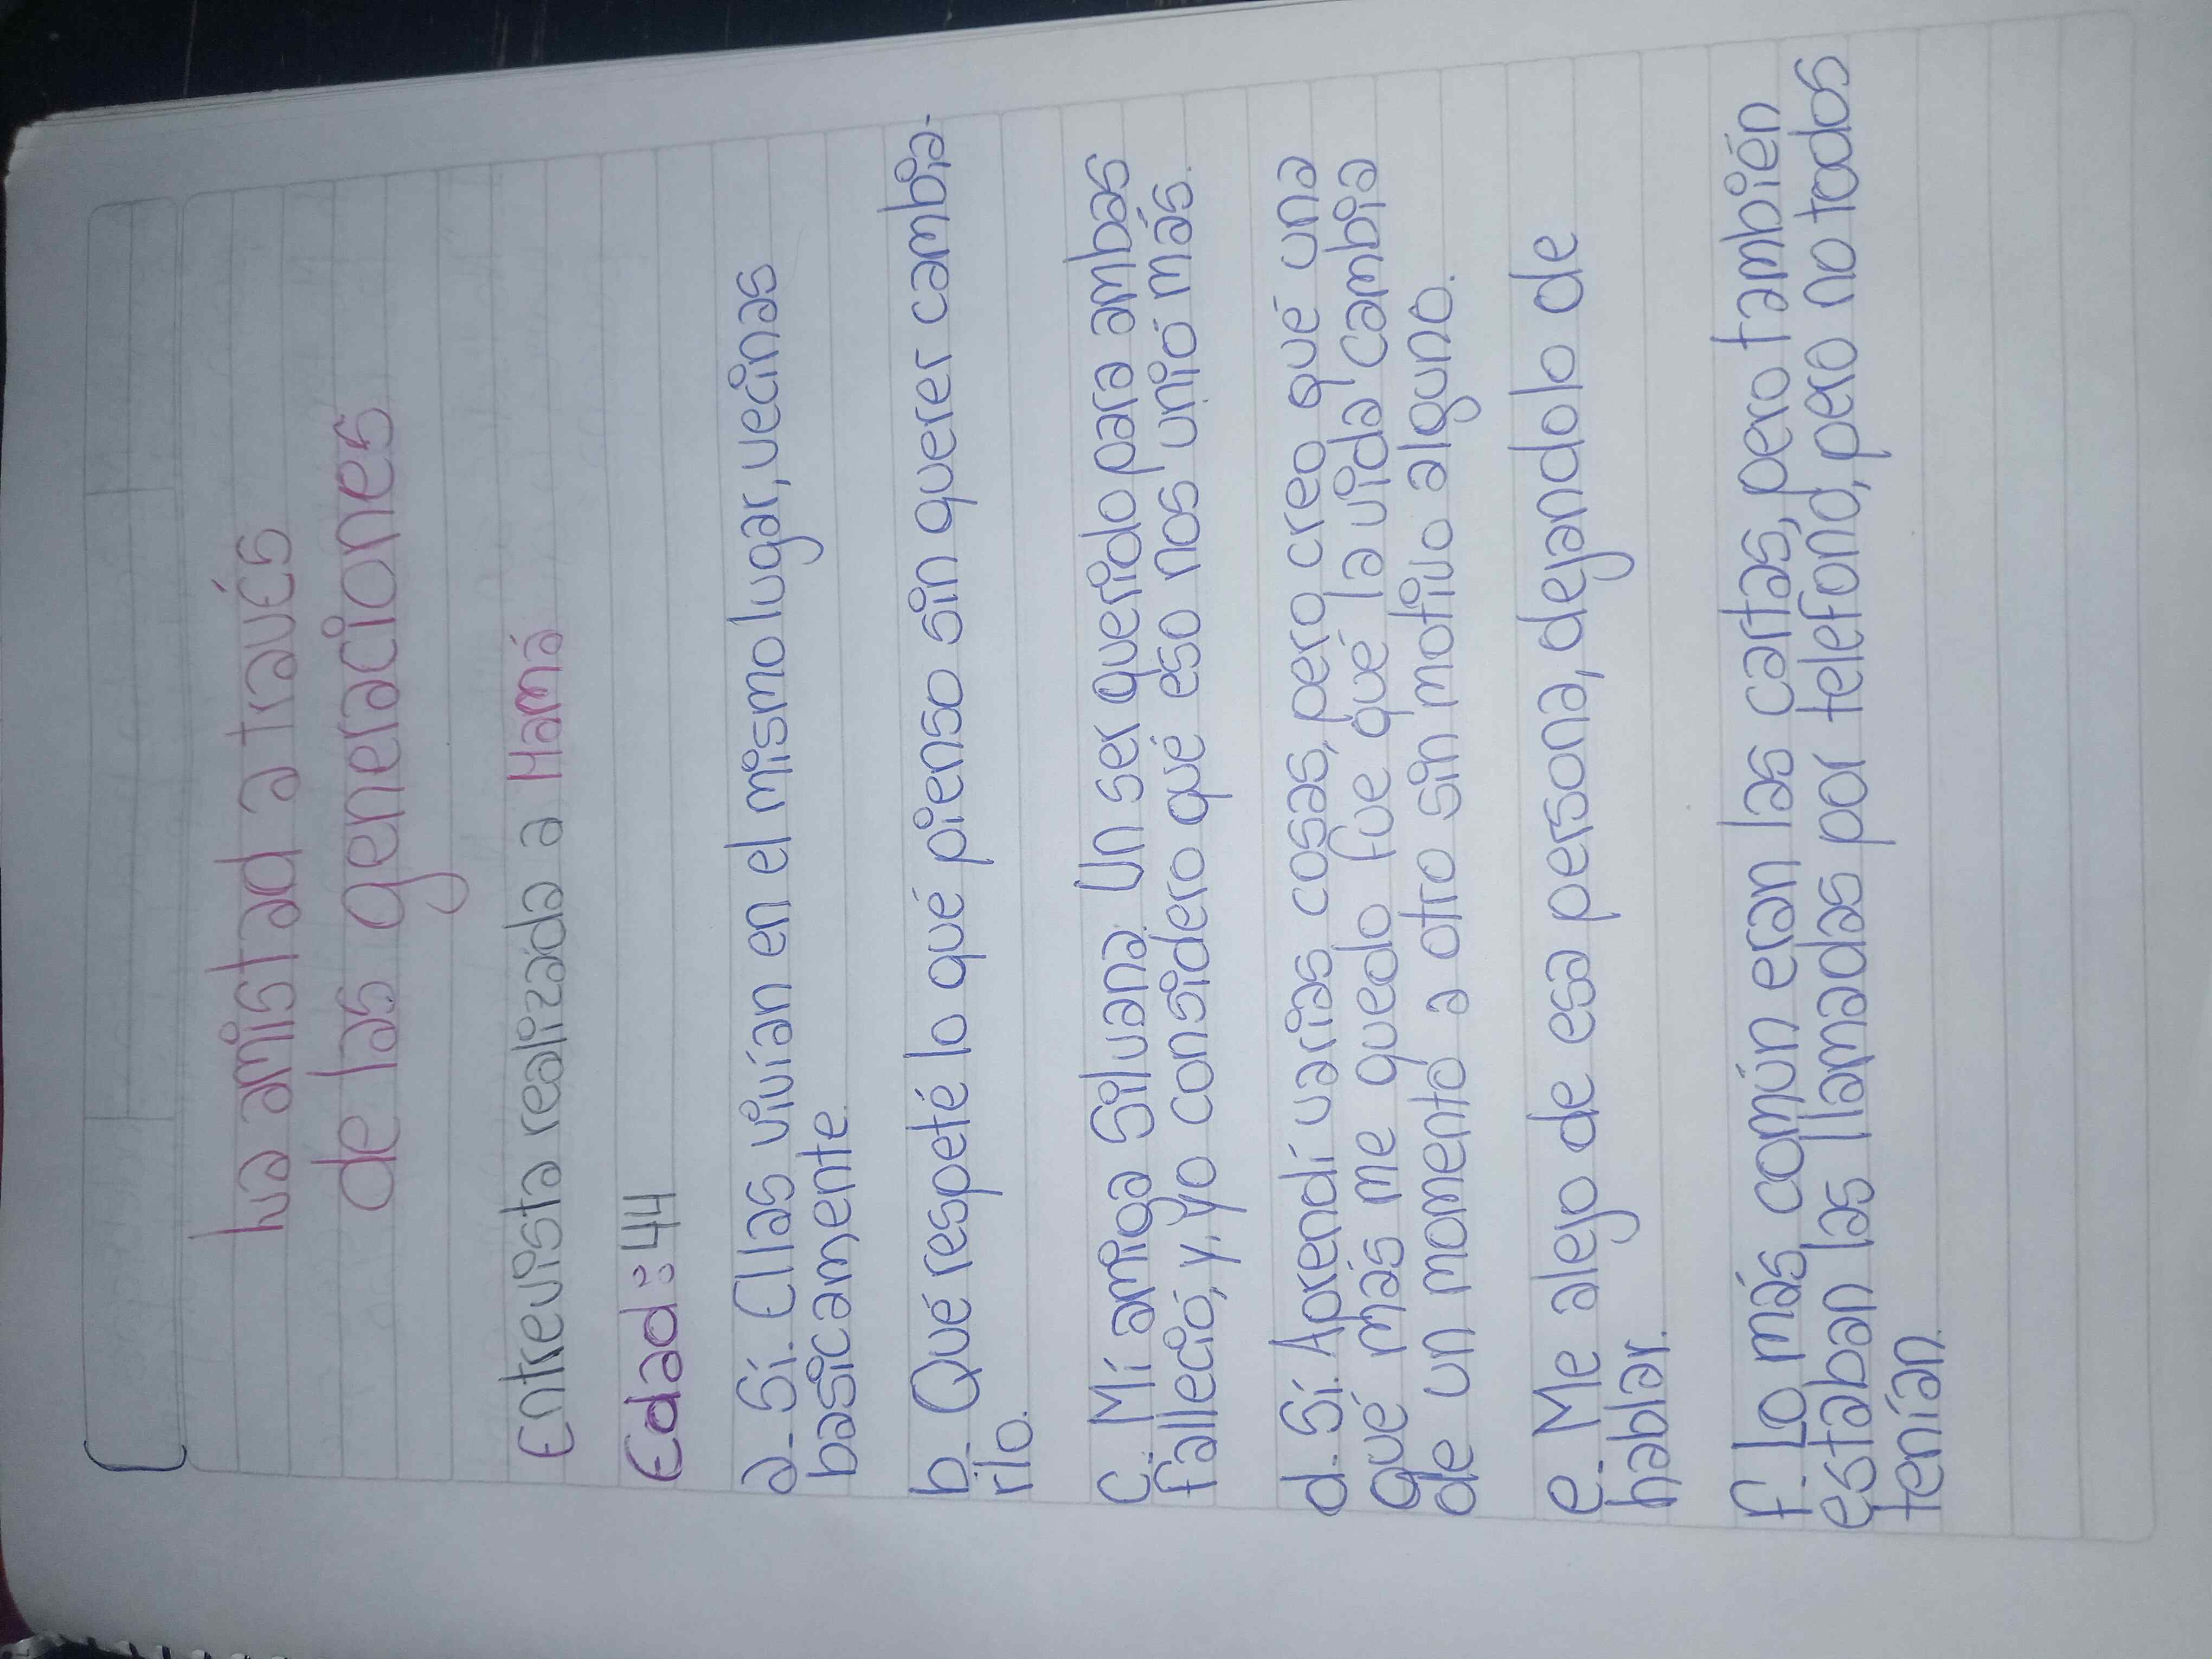 La amistad a través
de las generaciones
Entrevista realizada a Mamá
Edad: 44
a- Sí. Ellas vivían en el mismo lugar, vecinas
basicamente.
b- Qué respeté lo qué pienso sin querer cambia-
rilo.
c- Mí amiga Silvana. Un ser querido para ambas
falleció, y, yo considero qué eso nos unió más.
d- Sí. Aprendí varias cosas, pero creo qué una
qué más me quedo fue qué la vida cambia
de un momento a otro sin motivo alguno.
e- Me alejo de esa persona, dejandolo de
hablar.
f- Lo más común eran las cartas, pero también
estaban las llamadas por telefono, pero no todos
tenían.